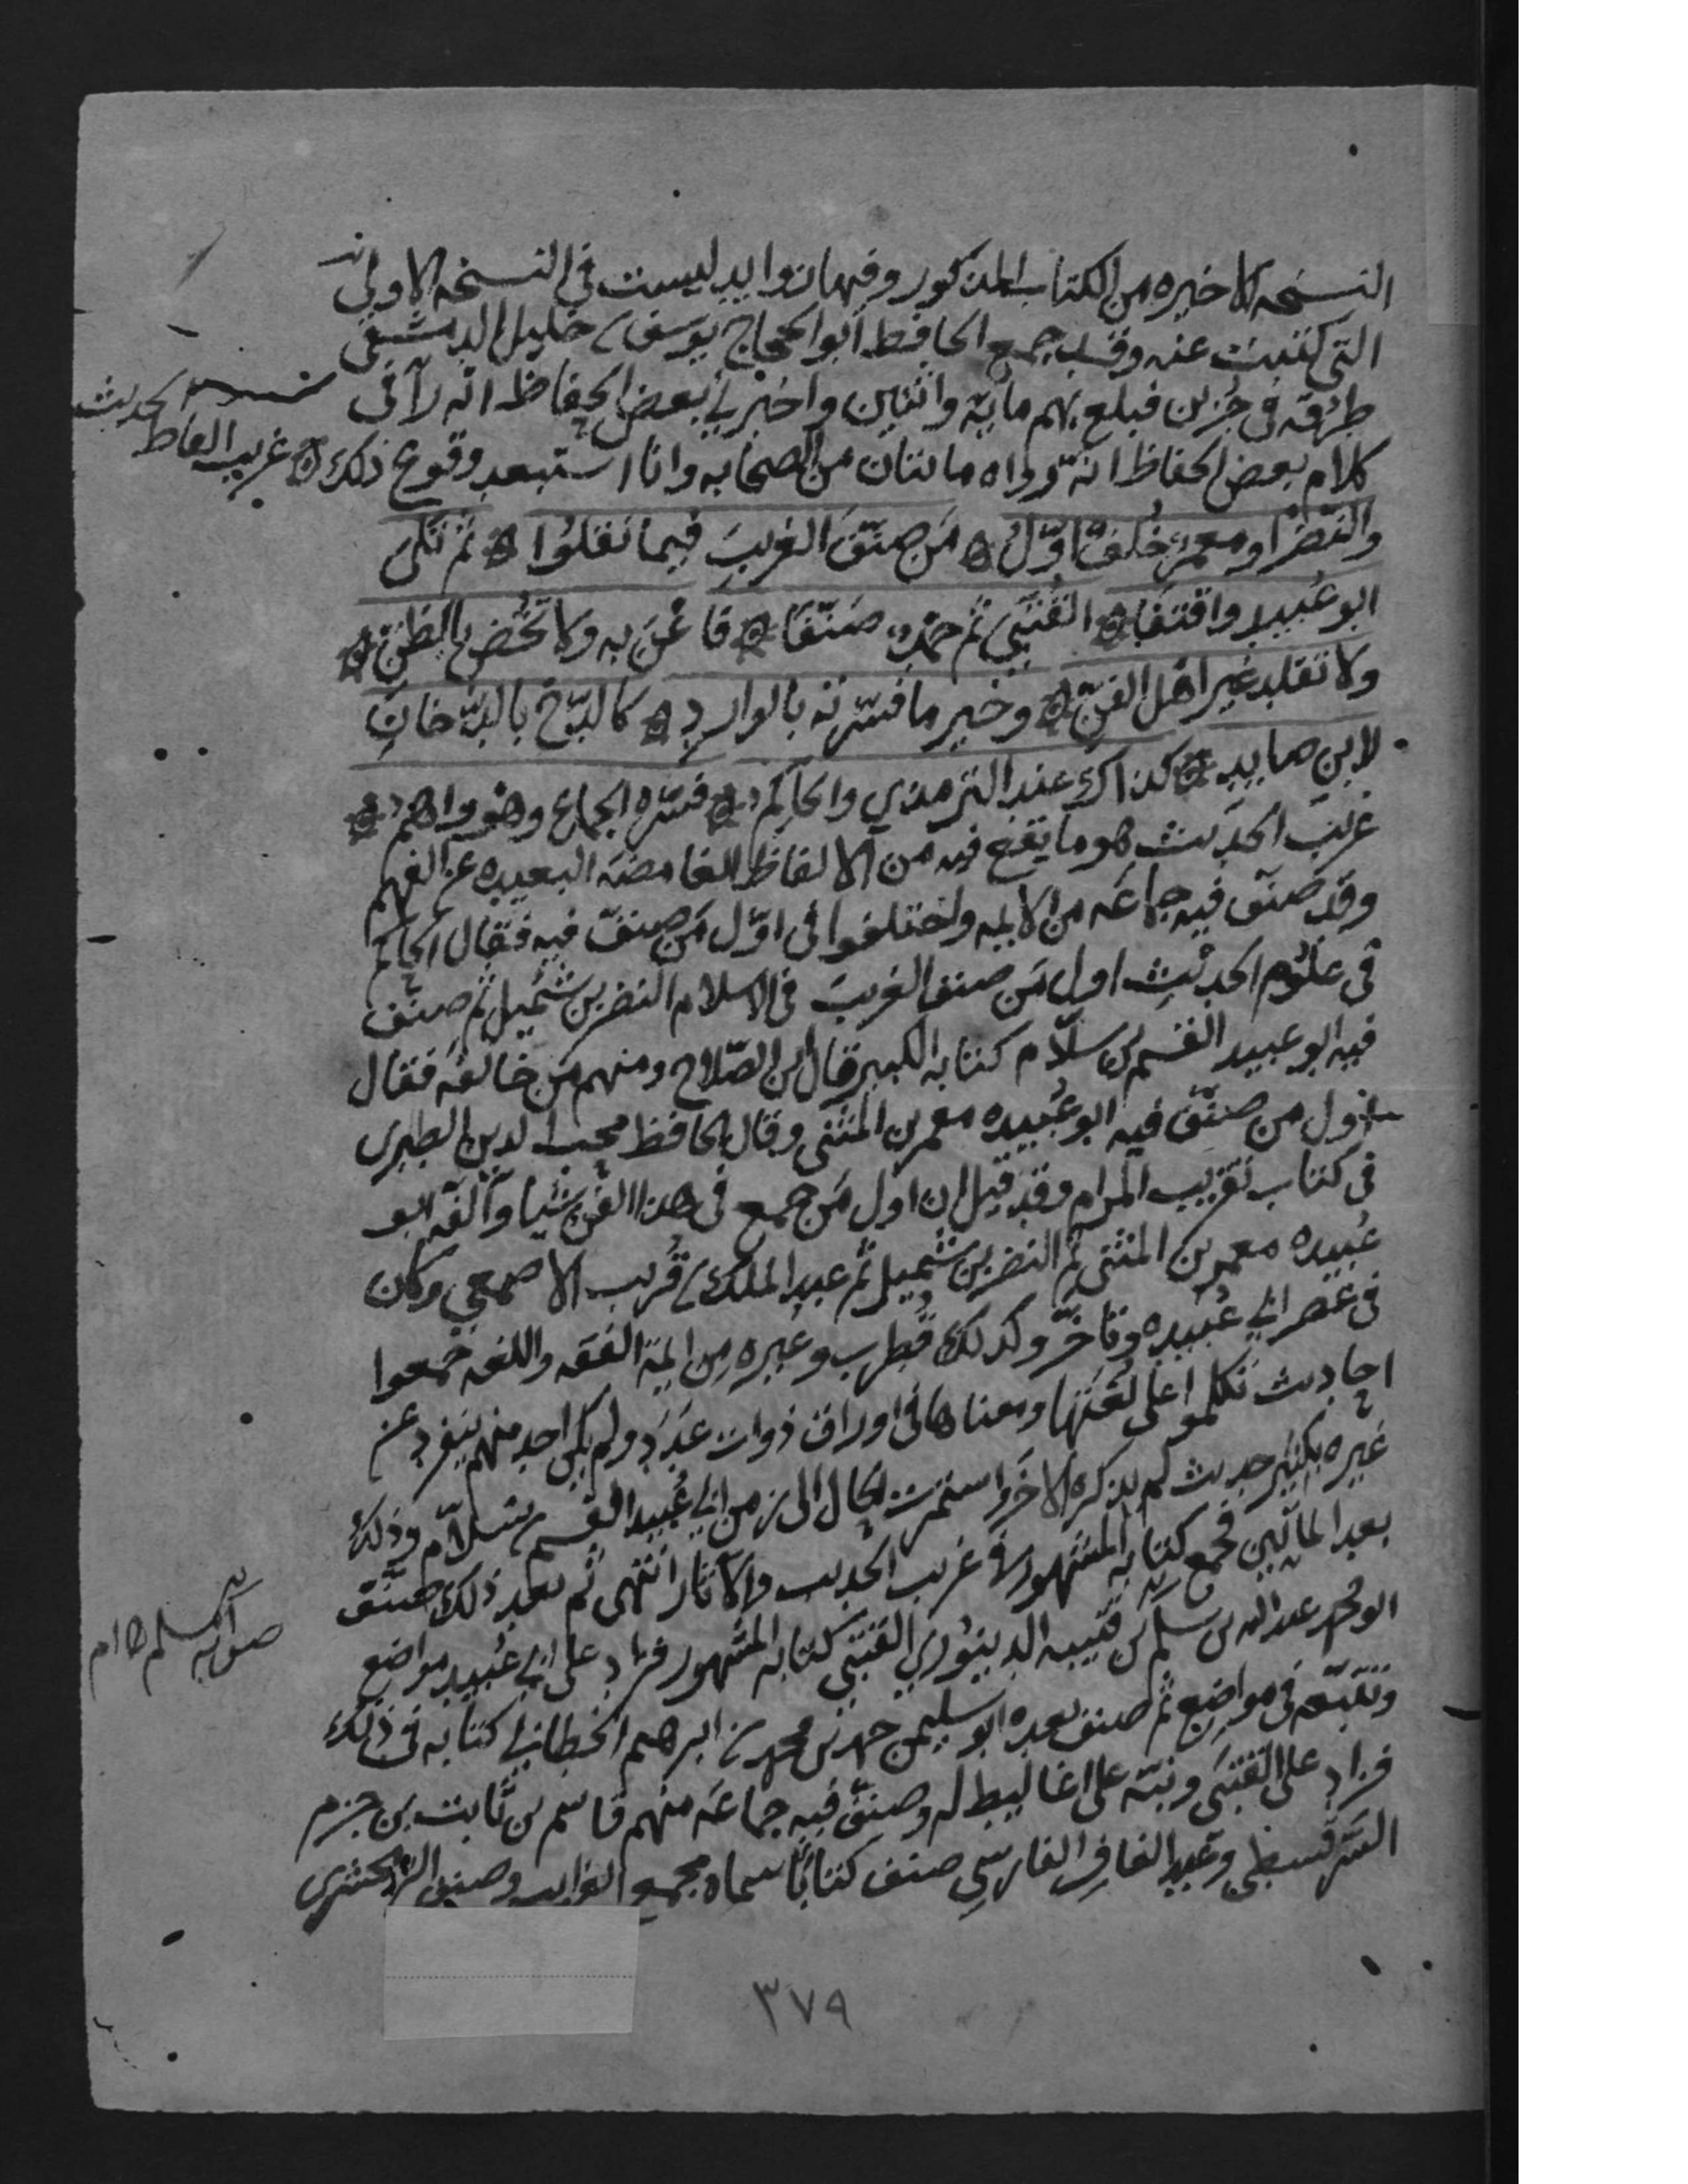 النسخه الاخيره من الكتاب المذكور وفيها زوايد ليست في النسخه الاولي
التي كتبت عنه وقد جمع الحافظ ابو الحجاج يوسف بن خليل الدمشقي
طرقه في جزئن فبلغ بهم مايه واثنين واخبرني بعض الحفاظ انه رآ في
كلام بعض الحفاظ انه رواه مائتان من الصحابه وانا استبعد وقوع ذلك ۞ غريب الفاظ الحديث
والنضر او معمر خلف اول ۞ من صنف الغريب فيما نقلوا ۞ ثم تلى
ابو عبيد واقتفا ۞ القتبي ثم حمد صنفا ۞ فاعن به ولا تخض بالظن ۞
ولا تقلد غير اهل الفن ۞ وخير ما فسرته بالوارد ۞ كالدخ بالدخان
لابن صايد ۞ كذاك عند الترمذي والحاكم ۞ فسره الجماع وهو واهم ۞
غريب الحديث هو ما يقع فيه من الالفاظ الغامضه البعيده عن الفهم
وقد صنف فيه جماعه من الايمه واختلفوا في اول من صنف فيه فقال الحاكم
في علوم الحديث اول من صنف الغريب في الاسلام النضر بن شميل ثم صنف
فيه ابو عبيد القسم بن سلام كتابه الكبير قال ابن الصلاح ومنهم من خالفه فقال
اول من صنف فيه ابو عبيده معمر بن المثنى وقال الحافظ محب الدين الطبري
في كتاب تقريب المرام وقد قيل ان اول من جمع في هذا الفن شيا وألفه ابو
عبيده معمر بن المثنى ثم النضر بن شميل ثم عبد الملك بن قريب الاصمعي وكان
في عصر ابي عبيده وتاخر وكذلك قطرب وغيره من ايمة الفقه واللغه جمعوا
احاديث تكلموا على لغتها ومعناها في اوراق ذوات عدد ولم يكن احد منهم ينفرد عن
غيره بكثير حديث لم يذكره الاخر واستمرت الحال الى زمن ابي عبيد القسم بن سلام وذلك
بعد المائتين فجمع كتابه المشهور في غريب الحديث والاثار انتهى ثم بعد ذلك صنف
ابو محمد عبد الله بن مسلم بن قتيبه الدينوري القتبي كتابه المشهور فزاد على ابي عبيد مواضع
وتتبعه في مواضع ثم صنف بعده ابو سليمن حمد بن محمد بن ابرهيم الخطابي كتابه في ذلك
فزاد على القتبي ونبه على اغاليط له وصنف فيه جماعه منهم قاسم بن ثابت بن حزم
السرقسطي وعبد الغافر الفارسي صنف كتابا سماه مجمع الغرايب وصنف الزمخشري
صوابه
٣٧٩